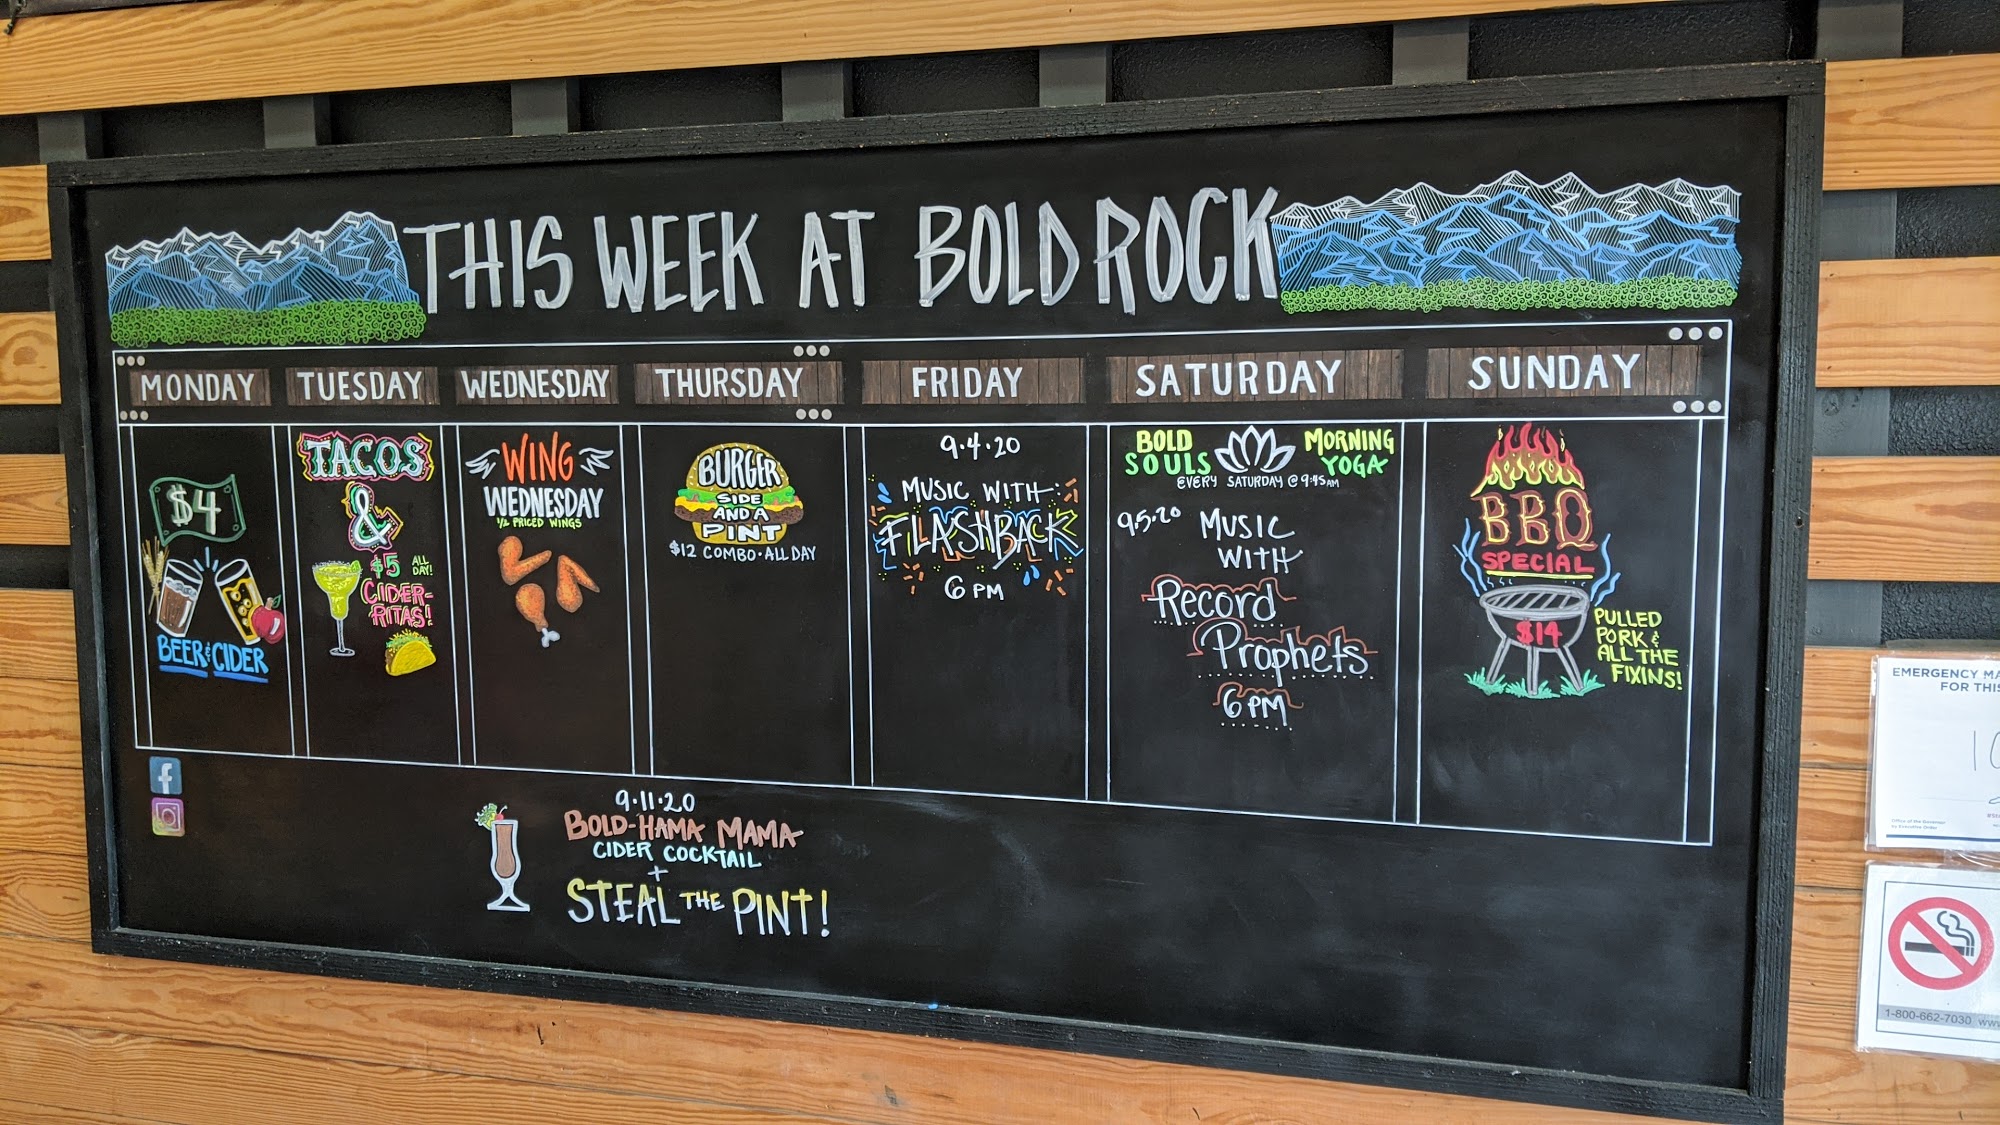 THIS WEEK AT BOLD ROCK
MONDAY
$4
BEER & CIDER
TUESDAY
TACOS
&
$5 ALL DAY!
CIDER-
RITAS!
WEDNESDAY
WING
WEDNESDAY
1/2 PRICED WINGS
THURSDAY
BURGER
SIDE
AND A
PINT
$12 COMBO · ALL DAY
FRIDAY
9.4.20
MUSIC WITH:
FLASHBACK
6 PM
SATURDAY
BOLD SOULS MORNING YOGA
EVERY SATURDAY @ 9:45 AM
9.5.20 MUSIC
WITH
Record
Prophets
6 PM
SUNDAY
BBQ
SPECIAL
$14
PULLED
PORK &
ALL THE
FIXINS!
9.11.20
BOLD-HAMA MAMA
CIDER COCKTAIL
+
STEAL THE PINT!
EMERGENCY
FOR THIS
Office of the Governor
by Executive Order
1-800-662-7030 www